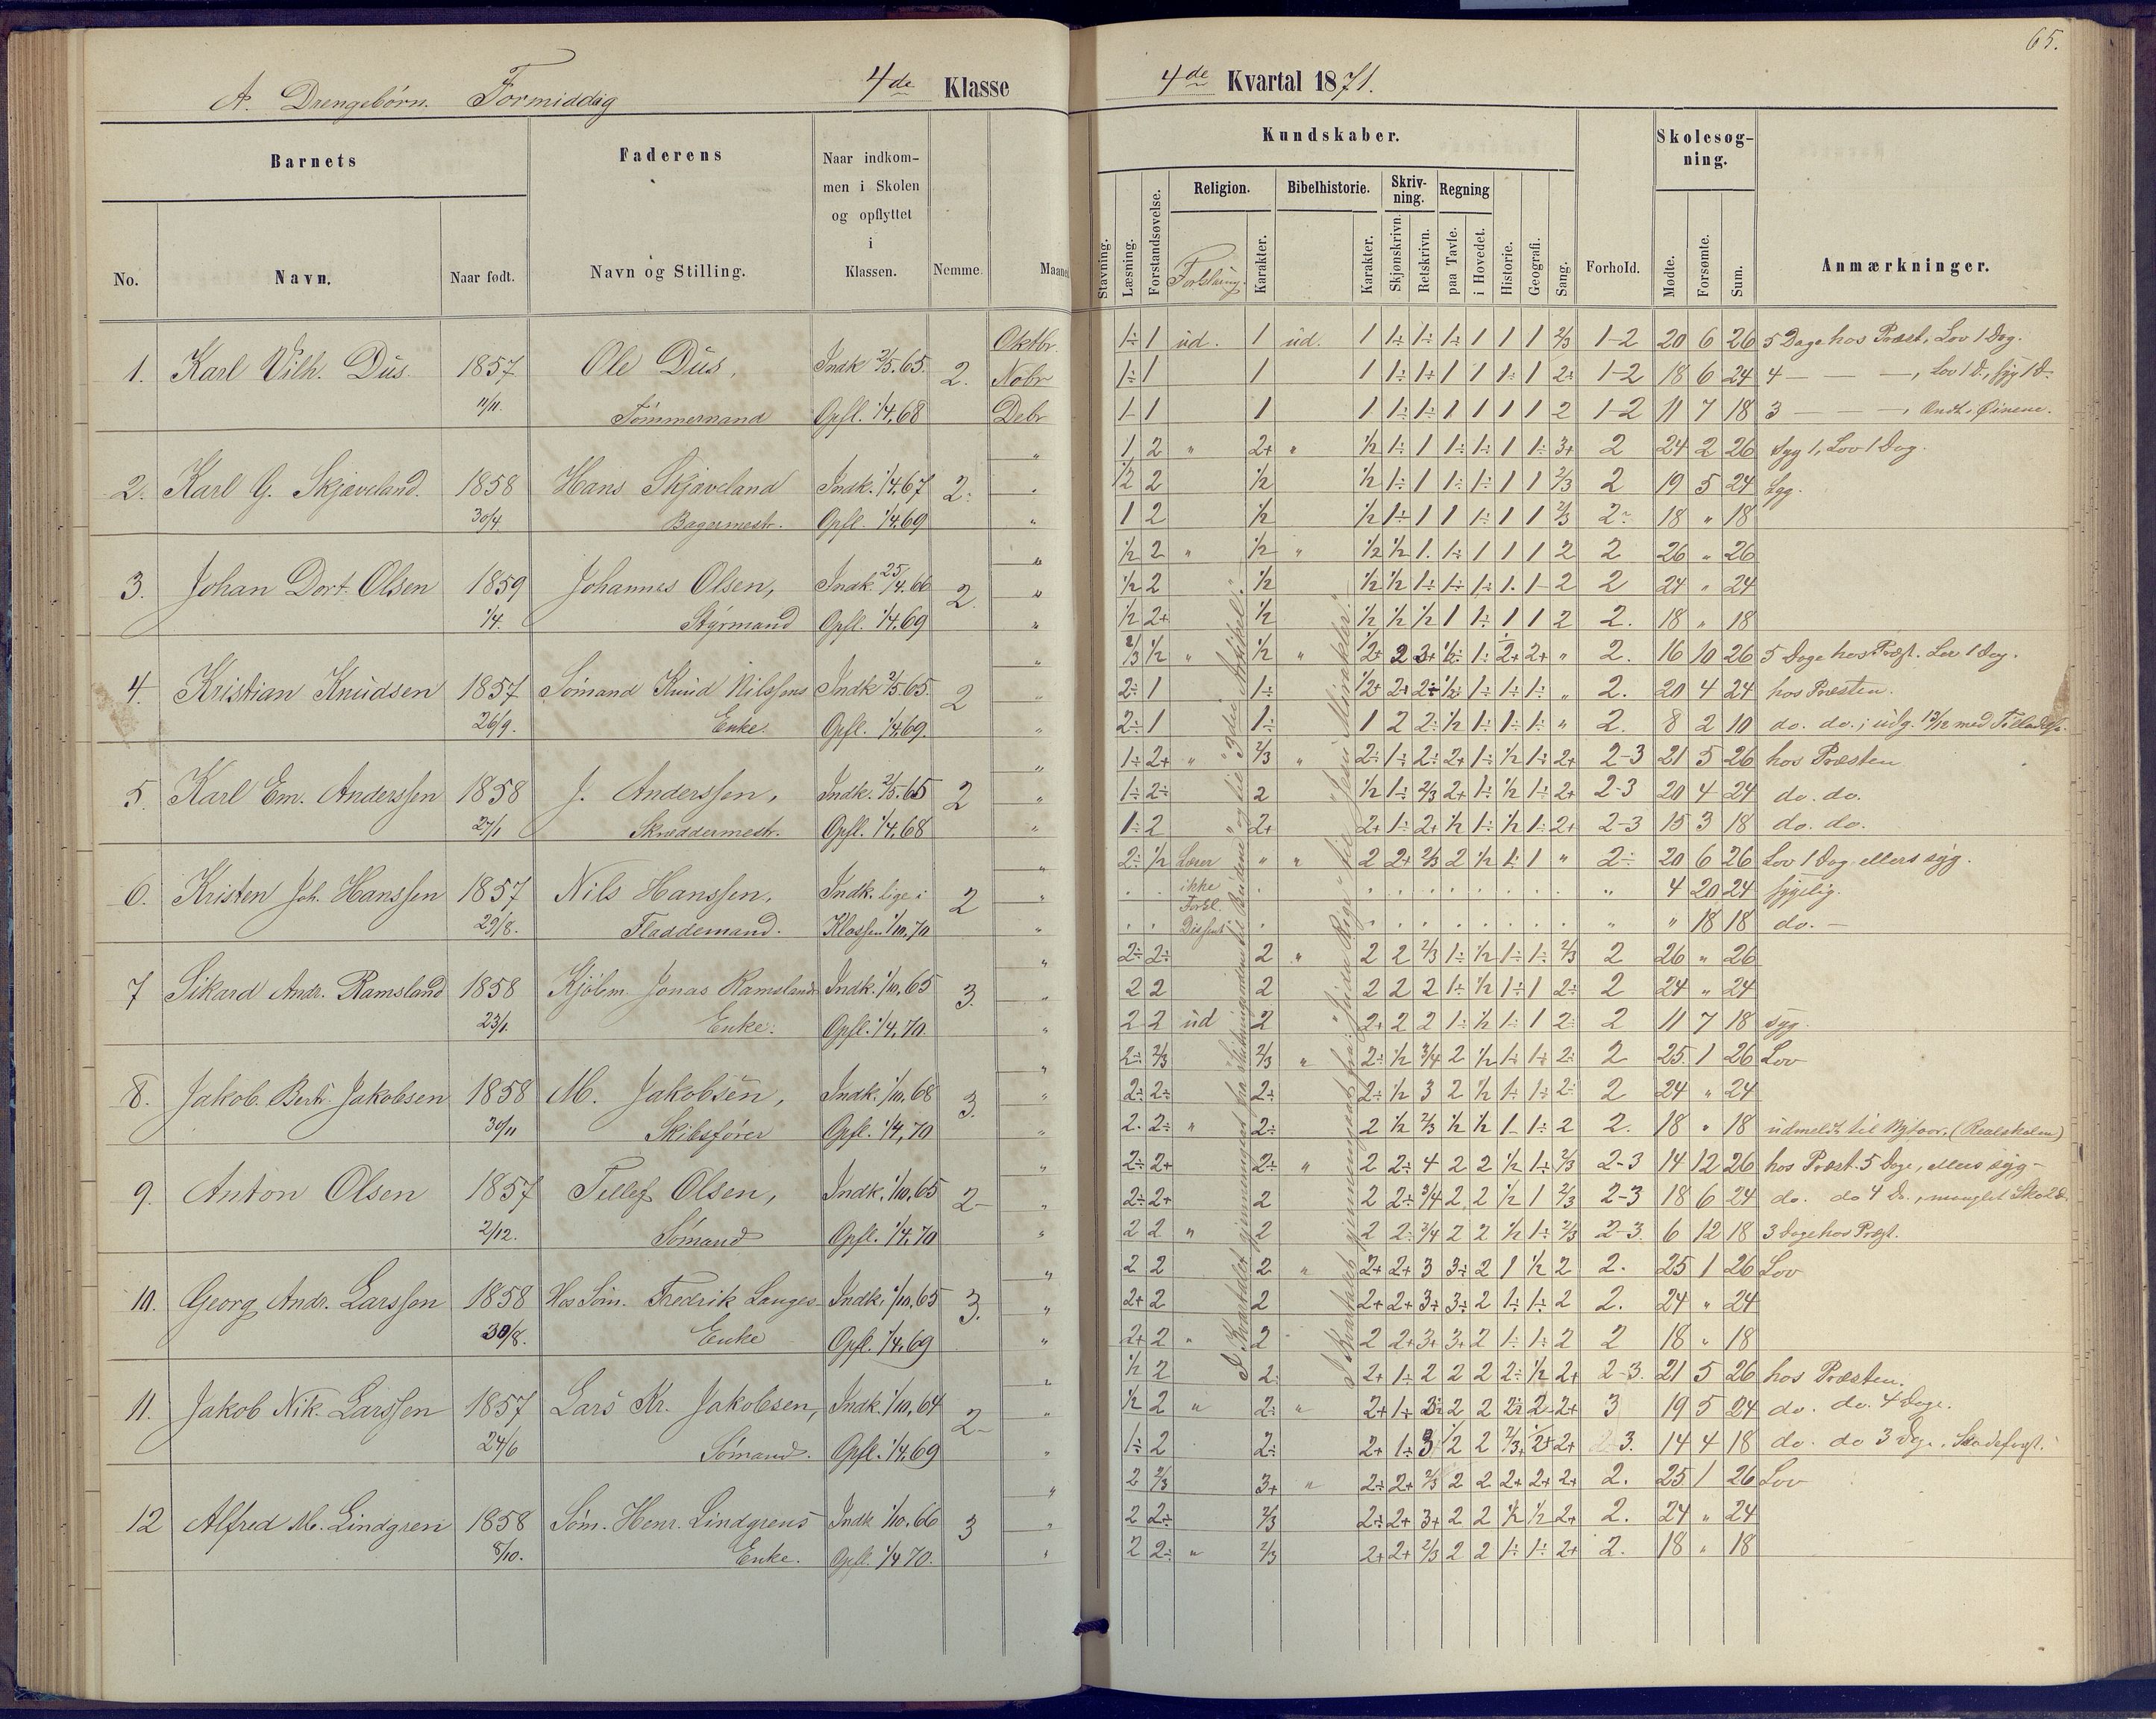 65.
A. Drengebørn. Formiddag 4de Klasse
4de Kvartal 1871.
Barnets
Faderens
Naar indkom-
men i Skolen
og opflyttet
i
Klassen.
No. Navn. Naar født. Navn og Stilling. Nemme. Maaned
Kundskaber.
Skolesøg-
ning.
Religion. Bibelhistorie. Skriv-
ning. Regning
Stavning. Læsning. Forstandsøvelse. Karakter. Karakter. Skjønskrivn. Retskrivn. paa Tavle. i Hovedet. Historie. Geografi. Sang. Forhold. Mødte. Forsømte. Sum. Anmærkninger.
1. Karl Vilh. Dus. 1857 Ole Dus, Indk 2/5.65. 2. Oktbr.
Nobr
11/11. Tømmermand Opfl. 1/4.68 Debr
1÷ 1 ud. 1 ud. 1 1÷ 1÷ 1÷ 1 1 1 2/3 1-2 20 6 26 5 Dage hos Præst, Lov 1 Dag.
1÷ 1 1 1 1÷ 1÷ 1 1 1÷ 1 2÷ 1-2 18 6 24 4 — — —, Lov 1 D., syg 1 D.
1- 1 1 1 1÷ 1÷ 1 1 1 1 2 1-2 11 7 18 3 — — —, Ondt i Øinene.
2. Karl G. Skjæveland. 1858 Hans Skjæveland Indk. 1/4.67 2÷
30/4 Bagermestr. Opfl. 1/4.69
1 2 " 2+ " 1/2 1÷ 1 1÷ 1÷ 1 1÷ 3+ 2 24 2 26 Syg 1, Lov 1 Dag.
1/2 2 1/2 1/2 1÷ 1 1÷ 1÷ 1 1 2/3 2 19 5 24 Syg.
1 2 1/2 1/2 1÷ 1 1 1÷ 1 1 2/3 2÷ 18 " 18
3. Johan Dort. Olsen 1859 Johannes Olsen, Indk. 25/4.66 2.
1/4. Styrmand Opfl. 1/4.69
1/2 2 " 1/2 " 1/2 1/2 1. 1÷ 1 1 1 2 2 26 " 26
1/2 2 1/2 1/2 1/2 1÷ 1÷ 1÷ 1. 1- 2 2 24 " 24
1/2 2+ 1/2 1/2 1/2 1/2 1 1÷ 1 1 2 2. 18 " 18
4. Kristian Knudsen 1857 Sømand Knud Nilssens Indk 2/5.65. 2
26/9. Enke. Opfl. 1/4.69.
2/3 1/2 " 1/2 " 1/2+ 2 3+ 1/2÷ 1÷ 2+ 2+ " 2. 16 10 26 5 Dage hos Præst. Lov 1 Dag.
2÷ 1 1÷ 1/2+ 2+ 2÷ 1/2÷ 1÷ 1÷ 1÷ " 2. 20 4 24 hos Præsten.
2÷ 1 1÷ 1 2 2÷ 1/2 1÷ 1÷ 1÷ " 2. 8 2 10 do. do.; udg. 12/12 med Tilladelse.
5. Karl Em. Anderssen 1858 J. Anderssen, Indk. 2/5.65 2
27/1 Skræddermestr. Opfl. 1/4.68
1÷ 2+ " 2/3 " 2÷ 1÷ 2÷ 2+ 1÷ 1/2 1÷ 2+ 2-3 21 5 26 hos Præsten
1÷ 2÷ 2 1/2 1÷ 2/3 2+ 1÷ 1/2 1÷ 2+ 2-3 20 4 24 do. do.
1÷ 2 2+ 2+ 1÷ 2+ 1/2 1÷ 1/2 1÷ 2+ 2-3 15 3 18 do. do.
6. Kristen Joh. Hanssen 1857 Nils Hanssen, Indk. lige i 2
29/8. Fladdemand. Klassen 1/10.70
2÷ 1/2 Lærer " " 2 2+ 2/3 2 1/2 1÷ 1 " 2÷ 20 6 26 Lov 1 Dag ellers syg.
ikke " 4 20 24 sygelig.
Forkl.
" " 18 18 do. —
7 Sikard Andr. Ramsland 1858 Kjølm. Jonas Ramslands Indk. 1/10.65 3.
23/1. Enke. Opfl. 1/4.70
2÷ 2÷ 2 " 2 2 2/3 1÷ 1/2 1÷ 1÷ 2/3 2 26 " 26
2 2 2 2 2 2 1÷ 1/2 1÷ 1 2÷ 2 24 " 24
2 2 ud 2 2+ 2 2 1÷ 1/2 1÷ 1 2÷ 2 11 7 18 syg.
8. Jakob Bert. Jakobsen 1858 M. Jakobsen, Indk. 1/10.68 3.
30/11 Skibsfører Opfl. 1/4.70
2÷ 2/3 2/3 " 2÷ 1/2 3/4 2 1/2 1÷ 1÷ 2÷ 2 25. 1 26 Lov
2÷ 2÷ 2÷ 2÷ 1/2 3 2 1/2 1÷ 1÷ 2÷ 2 24 " 24
2÷ 2÷ " 2÷ 2 1/2 2/3 1/2 1/2 1- 1÷ 2 2. 18 " 18 udmeldt til (Realskolen)
9. Anton Olsen 1857 Tellef Olsen, Indk. 1/10.65 2-
2/12. Sømand Opfl. 1/4.70
2÷ 2+ 2÷ " 2 2÷ 4 2 2 1/2 1÷ 2/3 2-3 14 12 26 hos Præst. 5 Dage, ellers syg-
2÷ 2+ 2 2 2÷ 3/4 2 2 1/2 1 2/3 2-3 18 6 24 do. do 4 D., manglet Sko 2 D.
2 2 " 2 2 2÷ 3/4 2 2 1/2 1÷ 2/3 2-3. 6 12 18 3 Dage hos Præst.
10. Georg Andr. Larssen 1858 Hos Søm. Fredrik Langes Indk. 1/10.65 3.
30/8. Enke Opfl. 1/4.69
2 2 2 " 2+ 2+ 3 3÷ 2 1 1/2 2 2. 25 1 26 Lov
2+ 2 2 2+ 2+ 3÷ 3÷ 2 1÷ 1÷ 2 2. 24 " 24
2+ 2 " 2 2 2+ 3+ 3+ 2 1÷ 1÷ 2 2 18 " 18
11. Jakob Nik. Larssen 1857 Lars Kr. Jakobsen, Indk. 1/10.64 2-
24/6 Sømand. Opfl. 1/4.69
1/2 2 2÷ 2+ 1÷ 2 2 2 2÷ 1/2 2+ 2-3. 21 5 26 hos Præsten.
1/2 2 " 2÷ " 2+ 1+ 2÷ 2 2 2÷ 2 2+ 3 19 5 24 do. do. 4 Dage.
1÷ 2 2÷ 2+ 1÷ 3 1/2 2 2/3+ 2+ 2+ 3. 14 4 18 do. do 3 Dage.
12 Alfred M. Lindgren 1858 Søm. Henr. Lindgrens Indk 1/10.66 3
8/10. Enke. Opfl. 1/4 70.
2 2/3 3+ " 2÷ 2+ 2/3 2 2 2+ 2+ 2+ 2. 25 1 26 Lov
2 2÷ 2/3 2÷ 2+ 3+ 2 2 1/2 1/2 2+ 2. 24 " 24
2 2÷ " 2/3 2+ 2+ 2/3 2 2 1÷ 1÷ 2+ 2. 18 " 18